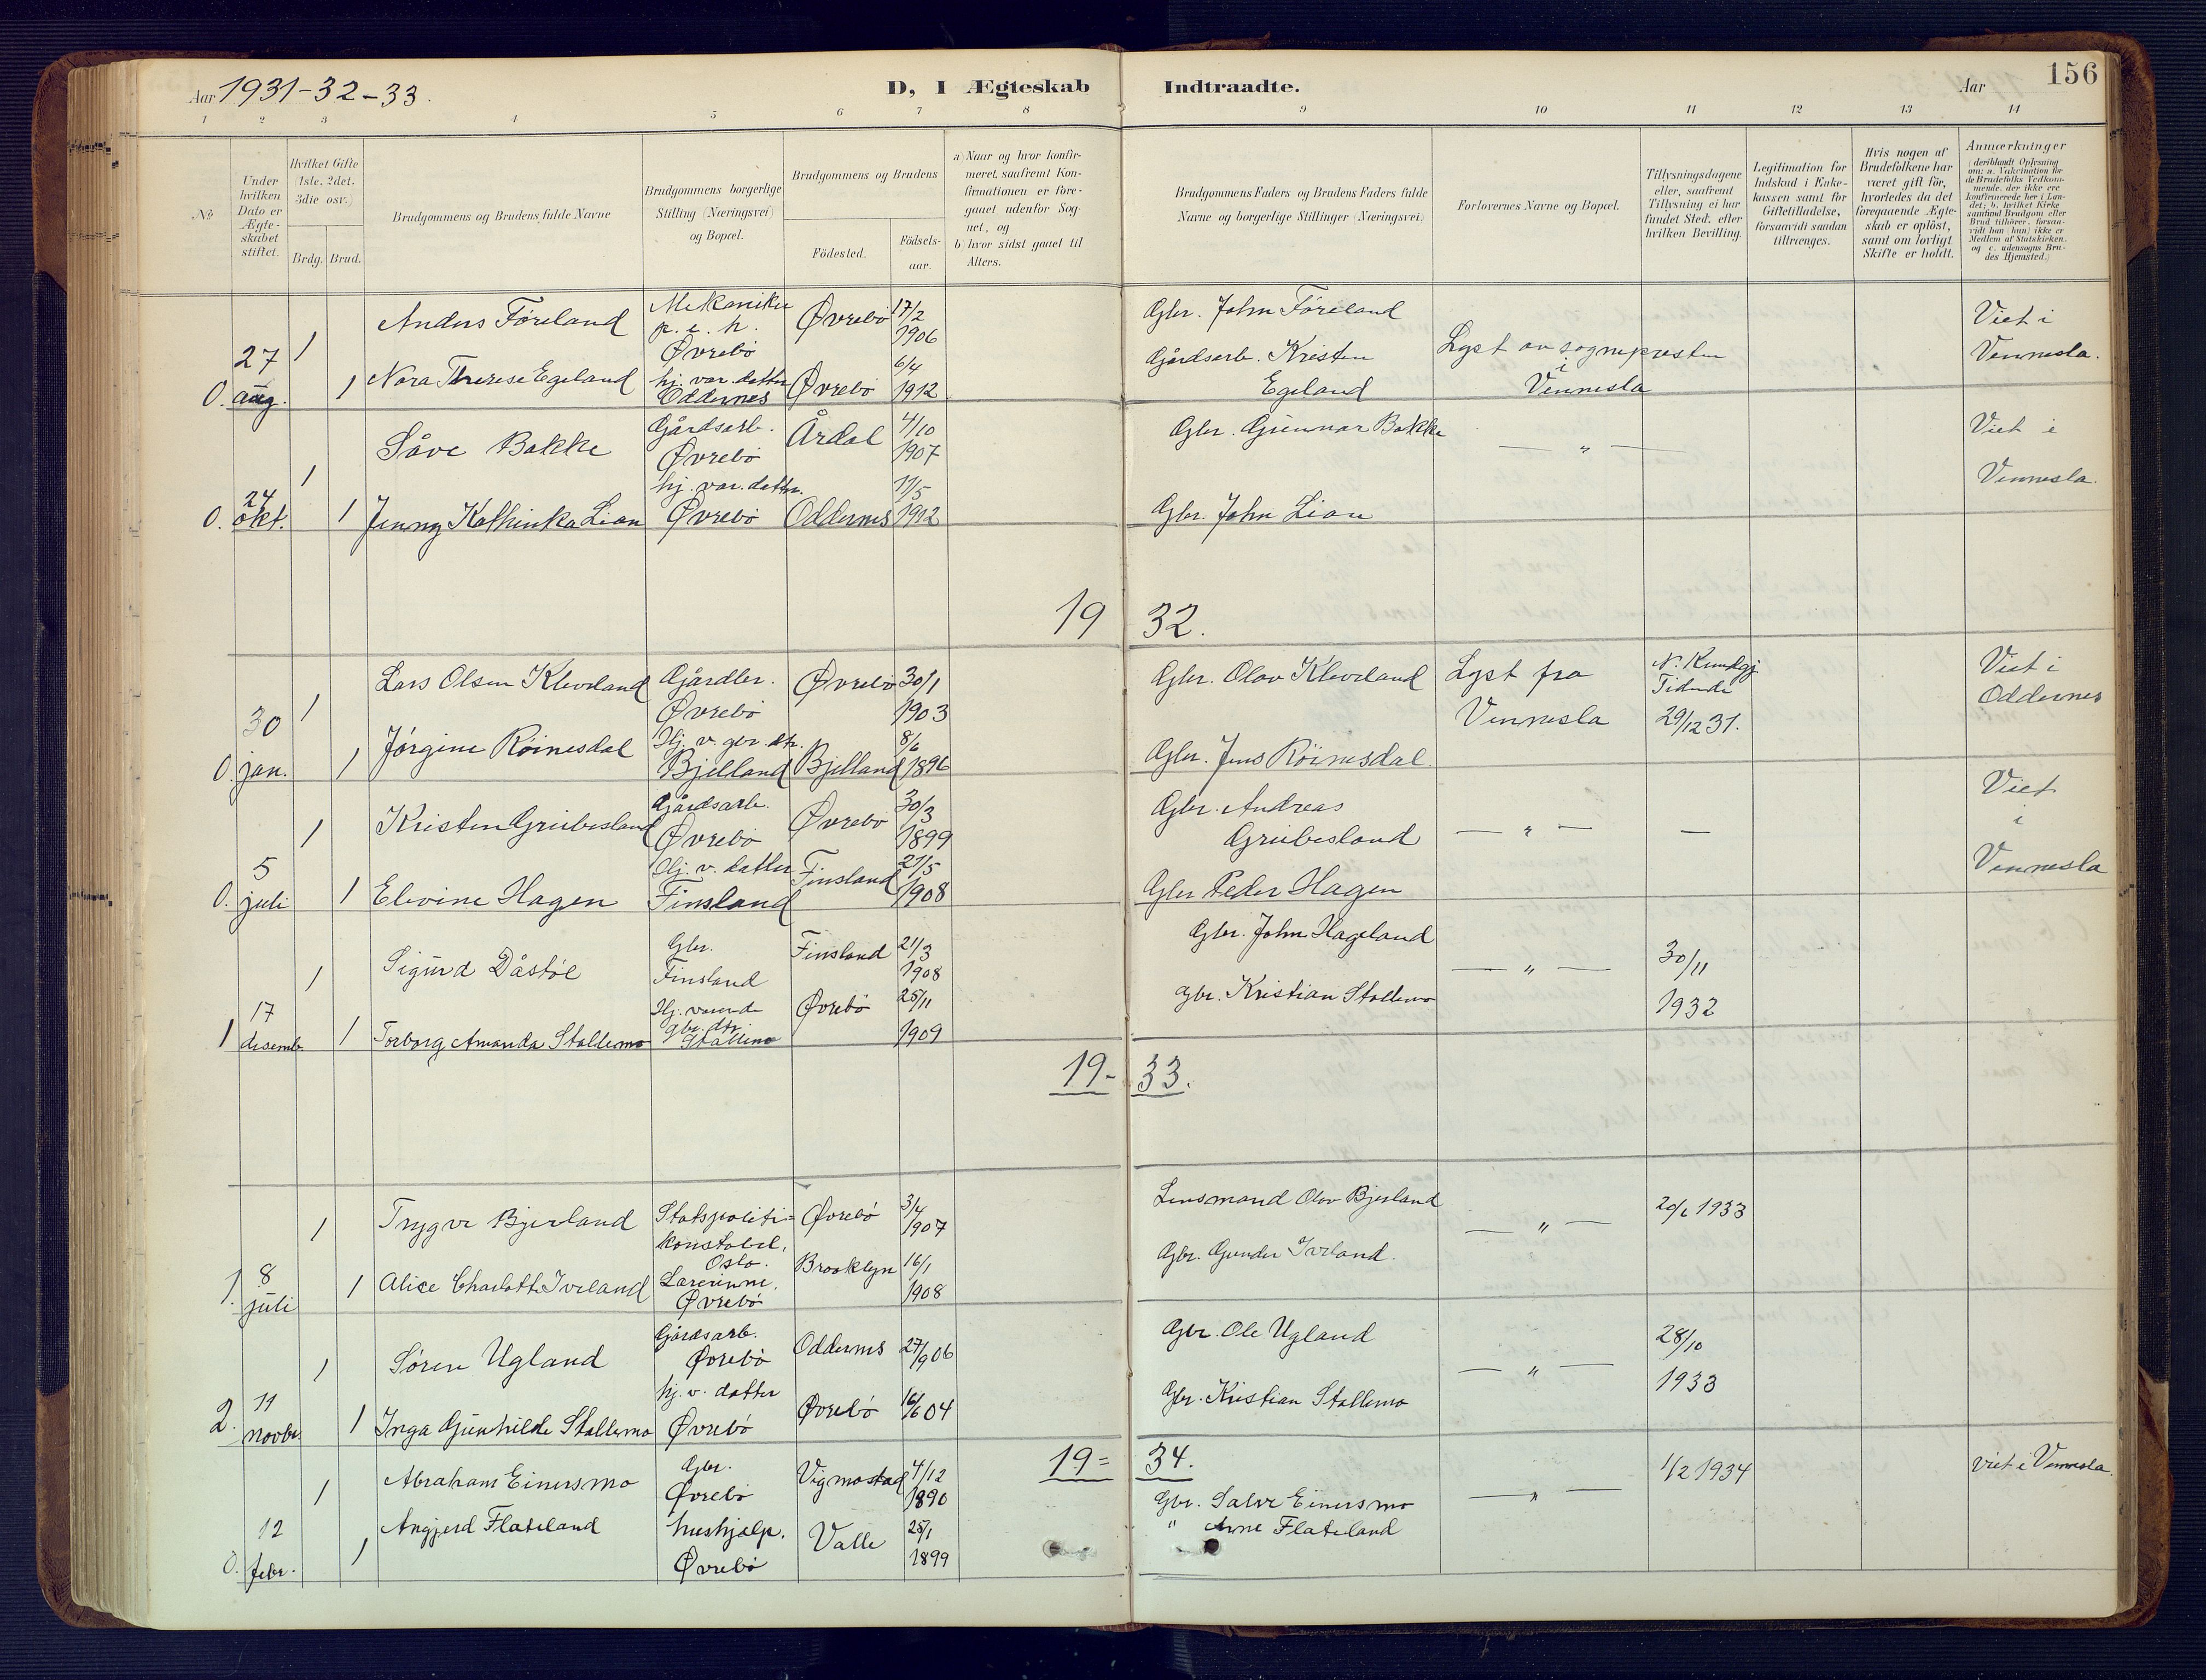 Aar 1931-32-33.
D, I Ægteskab Indtraadte.
Aar
156
1 2 3 4 5 6 7 8 9 10 11 12 13 14
No
Under hvilken Dato er Ægteskabet stiftet.
Hvilket Gifte (1ste, 2det, 3die osv.)
Brdg. Brud.
Brudgommens og Brudens fulde Navne
Brudgommens borgerlige Stilling (Næringsvei) og Bopæl.
Brudgommens og Brudens
Födested.
Födsels-aar.
a) Naar og hvor konfirmeret, saafremt Konfirmationen er foregaaet udenfor Sognet, og
b) hvor sidst gaaet til Alters.
Brudgommens Faders og Brudens Faders fulde Navne og borgerlige Stillinger (Næringsvei)
Forlovernes Navne og Bopæl.
Tillysningsdagene eller, saafremt Tillysning ei har fundet Sted, efter hvilken Bevilling.
Legitimation for Indskud i Enkekassen samt for Giftetilladelse, forsaavidt saadan tiltrænges.
Hvis nogen af Brudefolkene har været gift för, hvorledes da det foregaaende Ægteskab er oplöst, samt om lovligt Skifte er holdt.
Anmærkninger
(deriblandt Oplysning om: a. Vakcination for de Brudefolks Vedkommende, der ikke ere konfirmerede her i Landet; b. hvilket Kirkesamfund Brudgom eller Brud tilhörer, forsaavidt han (hun) ikke er Medlem af Statskirken, og c. udensogns Brudes Hjemsted.)
0. 27 aug. 1 Anders Föreland Mekaniker p.e.h. Øvrebö Øvrebö 17/2 1906 Gbr. John Föreland Lyst av sognepresten i Vennesla Viet i Vennesla.
1 Nora Therese Egeland hj. vær. datter Oddernes Øvrebö 6/4 1912 Gårdsarb. Kristen Egeland
0. 24 okt. 1 Såve Bakke Gårdsarb. Øvrebö Årdal 4/10 1907 Gbr. Gunnar Bakke — " — Viet i Vennesla.
1 Jenny Kathinka Lian hj. vær. datter. Øvrebö Oddernes 17/5 1912 Gbr. John Lian
19 32.
0. 30 jan. 1 Lars Olsen Kleveland Gårdbr. Øvrebö Øvrebö 30/1 1903 Gbr. Olav Kleveland Lyst fra Vennesla N. Kundgj. Tidende 29/12 31. Viet i Oddernes
1 Jörgine Röinesdal Hj. v. gbr. dtr. Bjelland Bjelland 8/6 1896 Gbr. Jens Röinesdal.
0. 5 juli 1 Kristen Greibesland Gårdsarb. Øvrebö Øvrebö 30/3 1899 Gbr. Andreas Greibesland — " — — Viet i Vennesla
1 Elevine Hagen Hj. v. datter Finsland Finsland 21/5 1908 Gbr Peder Hagen
1 17 desemb. 1 Sigurd Dåstöl Gbr. Finsland Finsland 21/3 1908 Gbr. John Hageland — " — 30/11 1932
1 Torborg Amanda Stallemo Hj. værende gbr. dtr. Stallemo Øvrebö 25/11 1909 gbr. Kristian Stallemo
19- 33.
1. 8 juli 1 Trygve Bjerland Statspoliti-konstabel, Oslo. Øvrebö 3/4 1907 Lensmand Olav Bjerland — " — 20/6 1933
1 Alice Charlotte Iveland Lærerinne, Øvrebö Brooklyn 16/1 1908 Gbr. Gunder Iveland.
2. 11 novbr. 1 Sören Ugland Gårdsarb. Øvrebö Oddernes 27/9 06 Gbr. Ole Ugland — " — 28/10 1933
1 Inga Gunhilde Stallemo hj. v. datter Øvrebö Øvrebö 16/6 04 Gbr. Kristian Stallemo
19= 34.
0. 12 febr. 1 Abraham Einersmo Gbr. Øvrebö Vigmostad 4/12 1890 Gbr. Salve Einersmo — " — 1/2 1934 viet i Vennesla.
1 Angjerd Flateland hushjelp. Øvrebö Valle 25/1 1899 " Arne Flateland